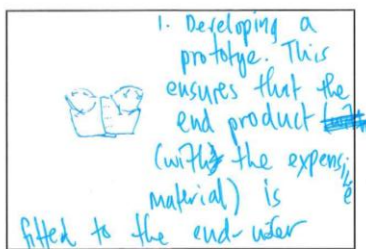 1. Developing a
prototye. This
ensures that the
end product
(with the expensive
material) is
fitted to the end-user